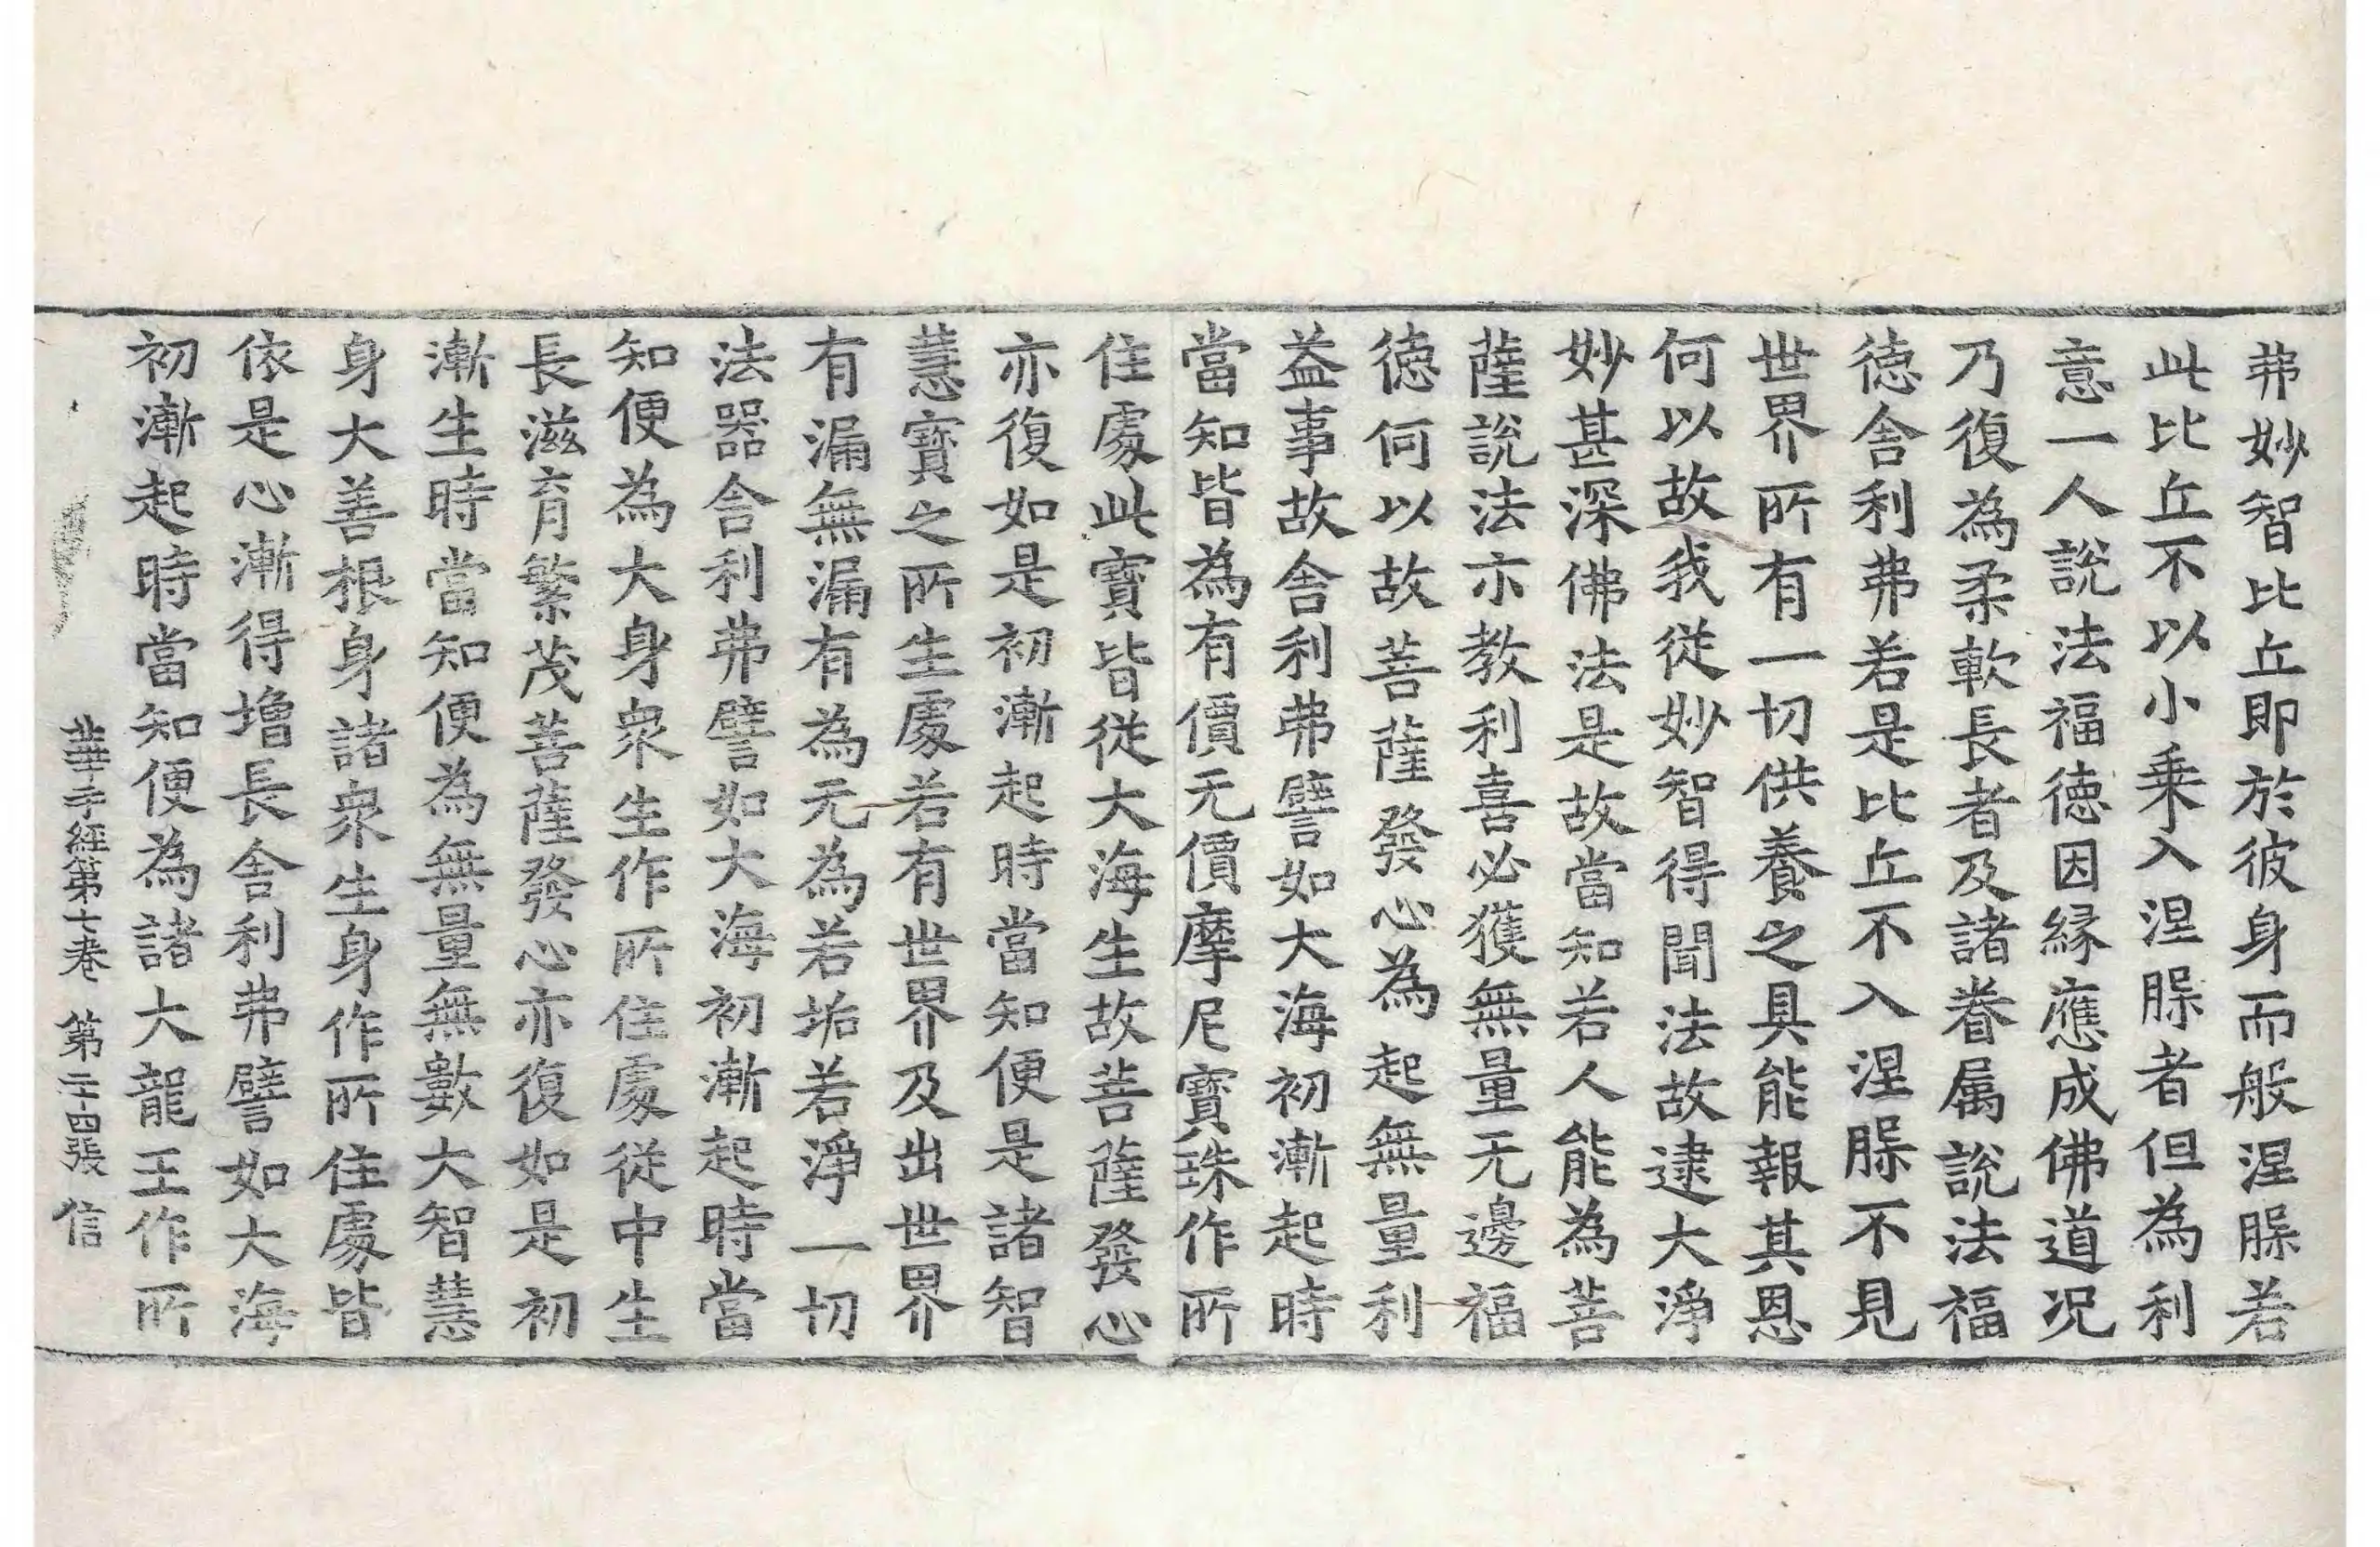 弗妙智比丘即於彼身而般涅槃若
此比丘不以小乗入涅槃者但為利
意一人說法福徳因縁應成佛道況
乃復為柔軟長者及諸眷属說法福
徳舎利弗若是比丘不入涅槃不見
世界所有一切供養之具能報其恩
何以故我從妙智得聞法故逮大淨
妙甚深佛法是故當知若人能為菩
薩說法亦教利喜必獲無量无邊福
徳何以故菩薩發心為起無量利
益事故舎利弗譬如大海初漸起時
當知皆為有價无價摩尼寶珠作所
住處此寶皆從大海生故菩薩發心
亦復如是初漸起時當知便是諸智
慧寶之所生處若有世界及出世界
有漏無漏有為无為若垢若淨一切
法器舎利弗譬如大海初漸起時當
知便為大身衆生作所住處從中生
長滋育繁茂菩薩發心亦復如是初
漸生時當知便為無量無數大智慧
身大善根身諸衆生身作所住處皆
依是心漸得增長舎利弗譬如大海
初漸起時當知便為諸大龍王作所
華手經第七卷 第二十四張 信